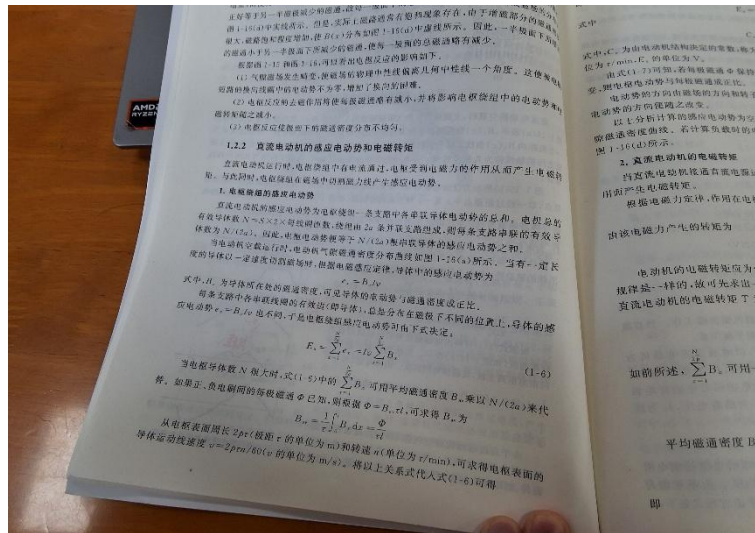 正好等于另一半磁极减少的磁通,
图1-16(d)中实线所示。但是,实际上磁路通常有饱和现象存在,由于增磁部分的磁通
很大,磁路饱和程度增加,使B(x)分布如图1-16(d)中虚线所示。因此,一半极面下所增
的磁通小于另一半极面下所减少的磁通,使每一极面的总磁通略有减少。
根据图1-15和图1-16,可以看出电枢反应的影响如下。
(1) 气隙磁场发生畸变,使磁场的物理中性线偏离几何中性线一个角度。这使被电
短路的换向线圈中的电动势不为零,增加了换向的困难。
(2) 电枢反应的去磁作用将使每极磁通略有减小,并将影响电枢绕组中的电动势和
磁转矩随之减小。
(3) 电枢反应使极面下的磁通密度分布不均匀。
1.2.2 直流电动机的感应电动势和电磁转矩
直流电动机运行时,电枢绕组中有电流通过,电枢受到电磁力的作用从而产生电磁转
矩。与此同时,电枢绕组在磁场中切割磁力线产生感应电动势。
1. 电枢绕组的感应电动势
直流电动机的感应电动势为电枢绕组一条支路中各串联导体电动势的总和。电枢总的
有效导体数N=S×2×每线圈匝数,绕组由2a条并联支路组成,则每条支路串联的有效导
体数为N/(2a)。因此,电枢电动势便等于N/(2a)根串联导体的感应电动势之和。
当电动机空载运行时,电动机气隙磁通密度分布曲线如图1-26(a)所示。当有一定长
度的导体以一定速度切割磁场时,根据电磁感应定律,导体中的感应电动势为
eᵢ=Bᵢlv
式中,Bᵢ为导体所在处的磁通密度,可见导体的电动势与磁通密度成正比。
每条支路中各串联线圈的有效边(即导体),总是分布在磁极下不同的位置上,导体的感
应电动势eᵢ=Bᵢlv也不同,于是电枢绕组感应电动势可由下式决定:
(1-6)
当电枢导体数N很大时,式(1-6)中的∑Bᵢ可用平均磁通密度Bₐᵥ乘以N/(2a)来代
替。如果正、负电刷间的每极磁通Φ已知,则根据Φ=Bₐᵥτl,可求得Bₐᵥ为
从电枢表面周长2pτ(极距τ的单位为m)和转速n(单位为r/min),可求得电枢表面的
导体运动线速度v=2pτn/60(v的单位为m/s)。将以上关系式代入式(1-6)可得
式中
式中,Cₑ为由电动机结构决定的常数,
位为r/min,Eₐ的单位为V。
由式(1-7)可知,若每极磁通Φ保持
变,则电枢电动势与每极磁通成正比。
电动势的方向由磁场的方向和转
电动势的方向随之改变。
以上分析计算的感应电动势为空
隙磁通密度曲线。若计算负载时的
图1-16(d)所示。
2. 直流电动机的电磁转矩
当直流电动机接通直流电源
用而产生电磁转矩。
根据电磁力定律,作用在电
由该电磁力产生的转矩为
电动机的电磁转矩应为
规律是一样的,故可先求出
直流电动机的电磁转矩T
如前所述,∑Bᵢ可用
平均磁通密度B
即
AMD
RYZEN